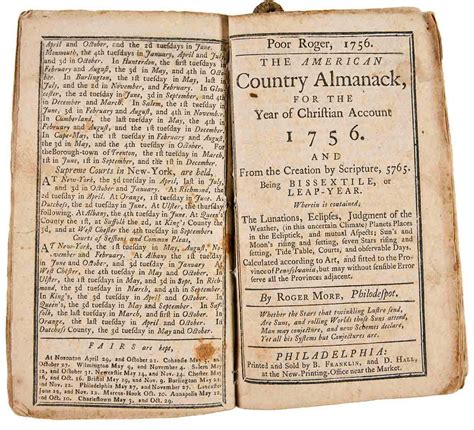 April and October, and the 2d tuesdays in June.
Monmouth, the 4th tuesdays in January, April and July
and 3d in October. In Hunterdon, the first tuesdays in
February and August, the 3d in May, and 4th in October.
In Burlington, the 1st tuesday in May,
July, and the 2d in November, and February. In
the 2d tuesday in June, 3d in September, and 4th
in December and March. In Salem, the 1st tuesday
In Cumberland, the last tuesday in May, the 4th
In Cape-May, the 1st tuesday in February and May,
For
the Borough-town of Trenton, the 1st tuesday in March,
1st in June, 1st in September, and in December.
Supreme Courts in New-York, are held,
AT New-York, the 3d tuesday in April, last in July,
and 3d in October and January. At Richmond, the
2d tuesday in April. At Orange, the 1st tuesday in June. At
Dutchess, the 2d tuesday in June. At Ulster, the thursday
following. At Albany, the 4th tuesday in June. At Queen's
County the 1st, at Suffolk the 2d, at King's County the
and at West-Chester the 4th tuesdays in September
Courts of Sessions and Common Pleas,
AT New-York, the 1st tuesday in May, August,
and February. At Albany the 1st tuesday in
June and October, and 3d tuesday in January. At
West Chester, the 4th tuesday in May and October. In
Ulster, the 1st tuesday in May, and 3d in September. In
Richmond, the 3d tuesday in March, and 4th in September.
In King's, the 3d tuesday in April, and October. In
Queen's, the 3d tuesday in May, and September. In
Suffolk, the last tuesday in March, and first in October. In
Orange, the last tuesday in April and October. In
Dutchess County the 3d tuesday in May and October.
FAIRS are kept,
At Noxonton April 29, and October 21. Cohansie May 5, and
October 27. Wilmington May 9, and November 4. Salem May
12, and October 31. Newcastle May 14, and Nov. 14. Chester May
16, and Oct. 16. Bristol May 19, and Nov. 9. Burlington May 21,
and Nov. 12. Philadelphia May 27, and November 27. Lancaster
June 12, and Nov. 12. Marcus-Hook Oct. 20. Annapolis May 12,
and Oct. 10. Charlestown May 3, and Oct. 29.
Poor Roger, 1756.
THE AMERICAN
Country Almanack,
FOR THE
Year of Christian Account
1756.
AND
From the Creation by Scripture, 5765.
Being BISSEXTILE, or
LEAP-YEAR.
Wherein is contained;
The Lunations, Eclipses, Judgment of the
Weather, (in this uncertain Climate) Planets Places
in the Ecliptick, and mutual Aspects; Sun's and
Moon's rising and setting, seven Stars rising and
setting, Tide Table, Courts, and observable Days.
Calculated according to Art, and fitted to the Pro-
vince of Pennsylvania, but may without sensible Error
serve all the Provinces adjacent.
By ROGER MORE, Philodespot.
Whether the Stars that twinkling Lustre send,
Are Suns, and rolling Worlds those Suns attend,
Man may conjecture, and new Schemes declare,
Yet all his Systems but Conjectures are.
PHILADELPHIA:
Printed and Sold by B. FRANKLIN, and D. HALL,
at the New-Printing-Office near the Market.